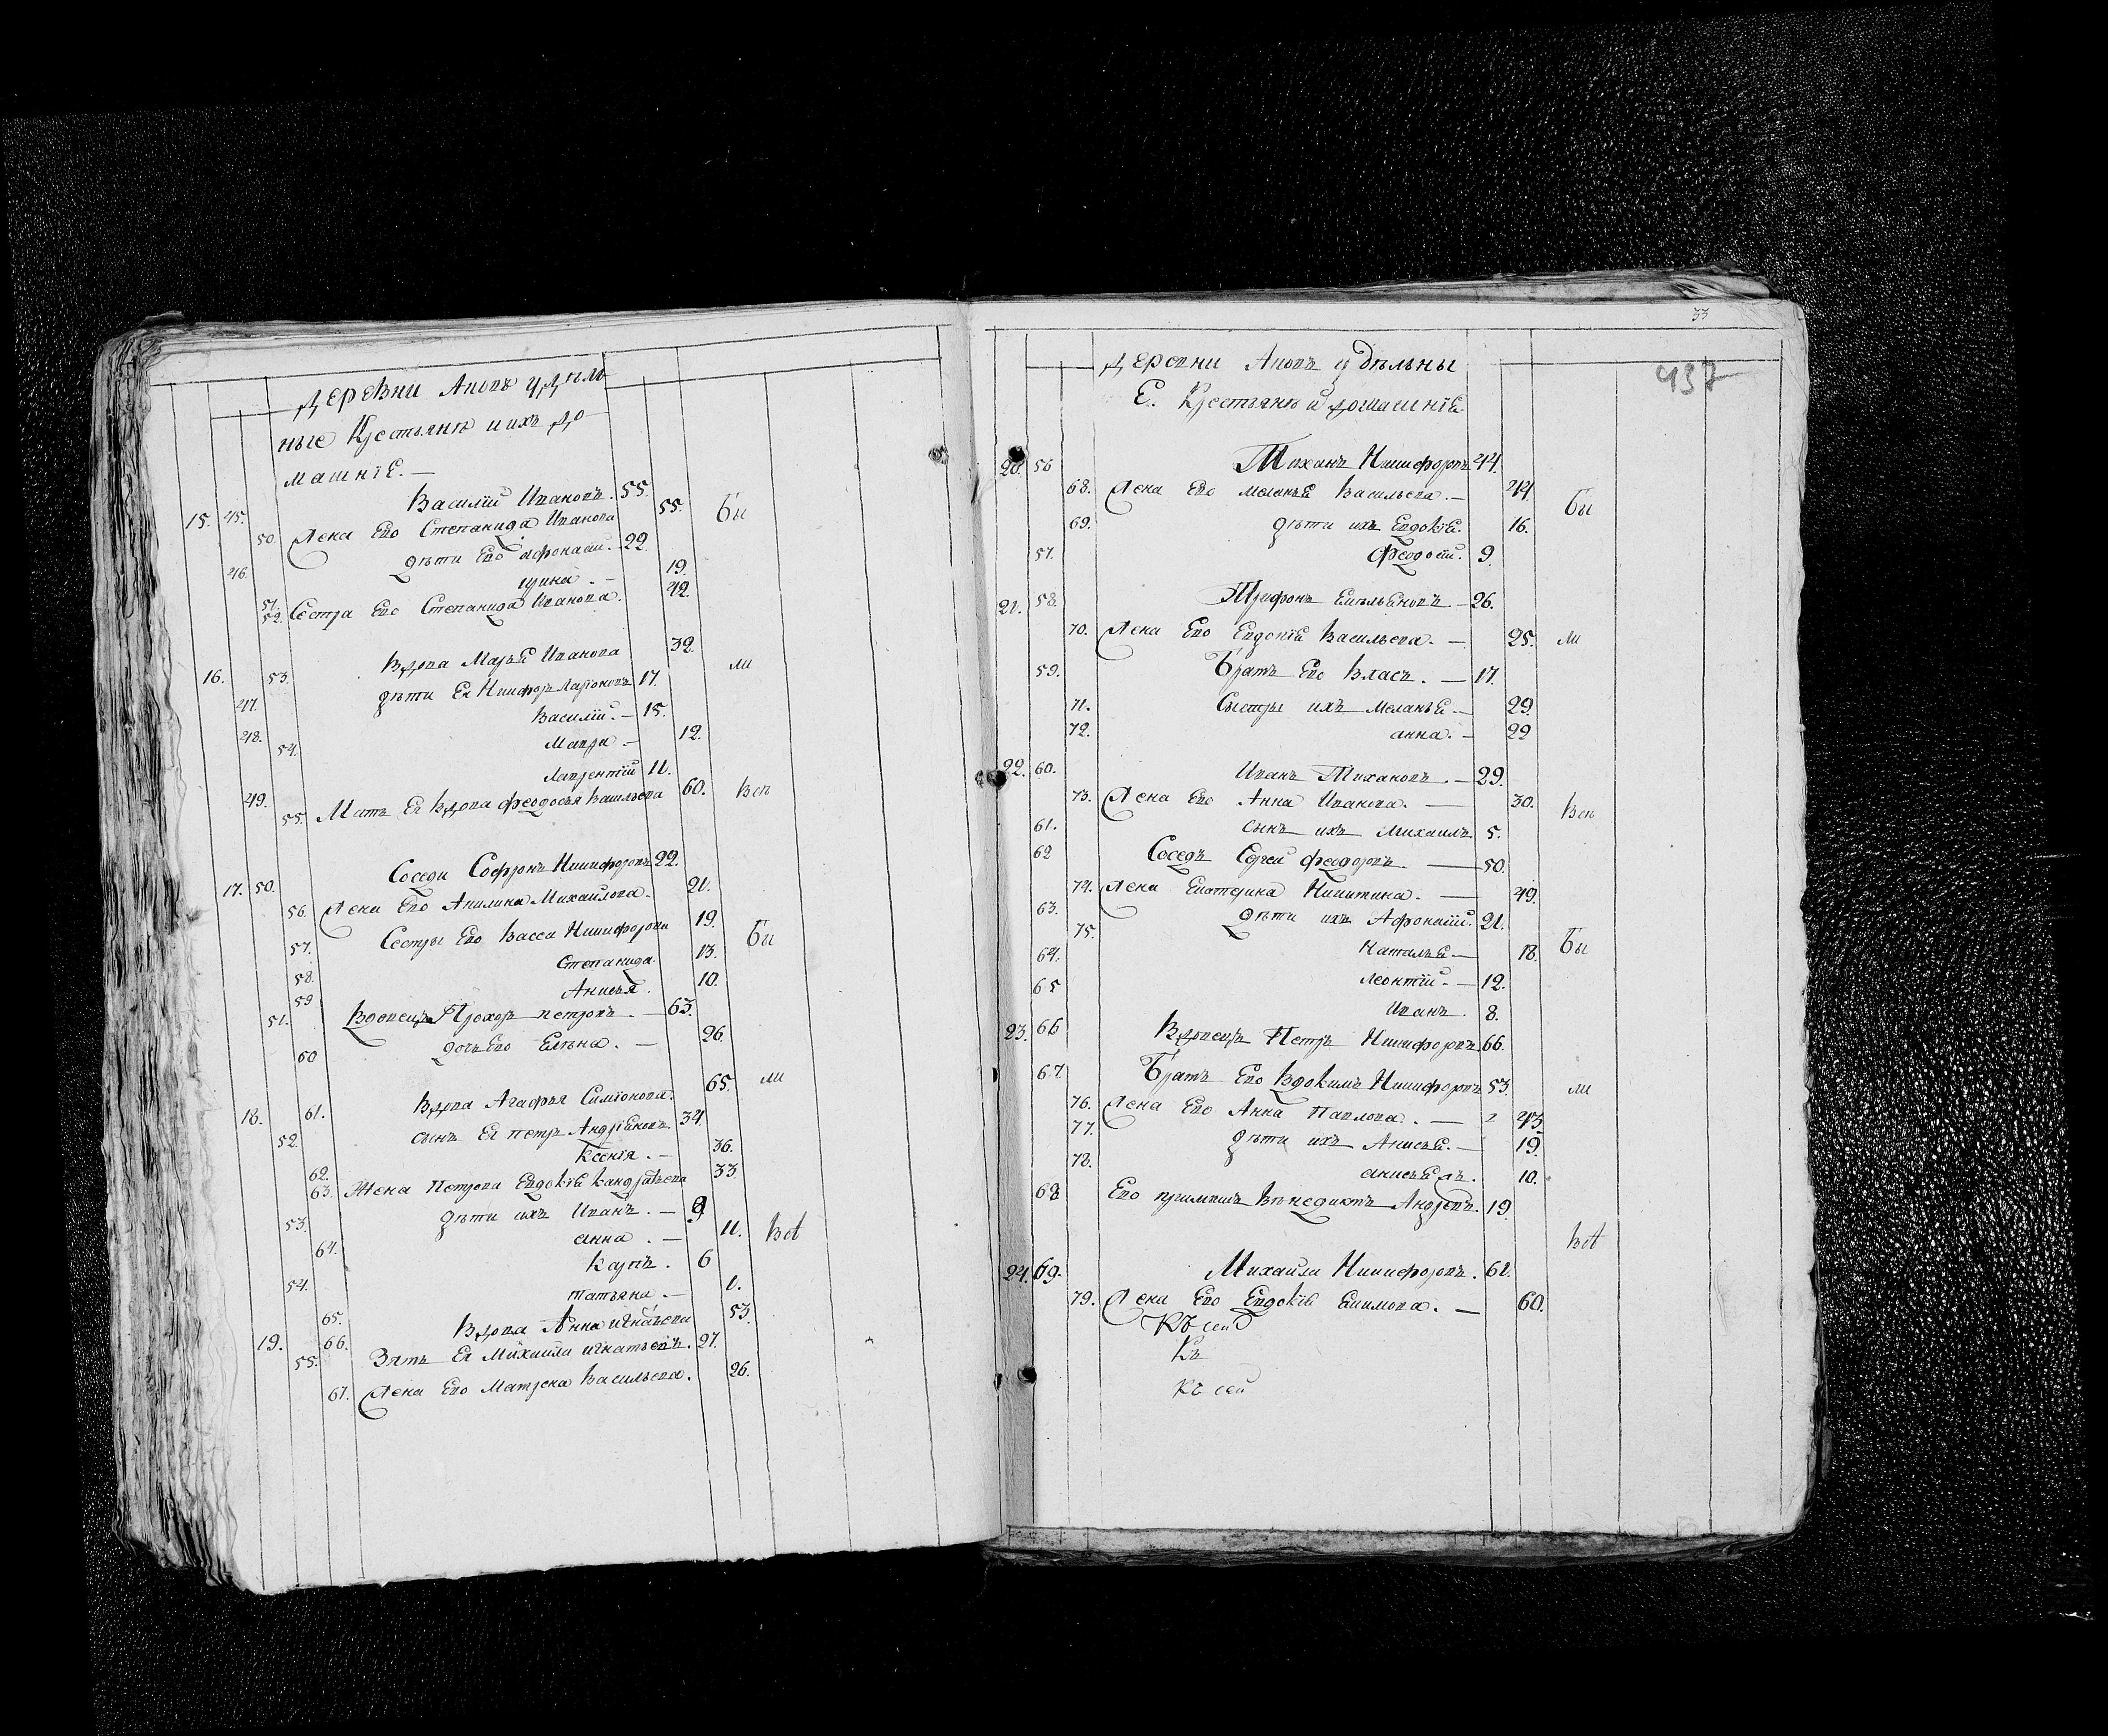 Деревни Аповъ удѣль
ные Крестьянѣ и ихъ до
машнїе. —
15. 45. Василїй Ивановъ. 55.
50. Жена Его Степанида Иванова 55. бы
46. дѣти Его Афонасїй. — 22.
51. ирина. — 19.
52. Сестра Его Степанида Иванова. 42.
16. 53. Вдова Марья Иванова 32. ли
47. дѣти Ея Никифоръ Ларїоновъ 17.
48. Василїй. — 15.
54. Мавра. — 12.
49. Лаврентїй 11.
55. Мать Ея вдова феодосья Васильева 60. Всѣ
17. 50. Соседи Софронъ Никифоровъ 22.
56. Жена Его Акилина Михайлова. 21.
57. Сестры Его Васса Никифорова 19. бы
58. Степанида. 13.
59 Анисья. 10.
51. Вдовецъ Прохоръ петровъ. — 63.
60 дочь Его Елѣна. — 26.
18. 61. Вдова Агафья Симїонова. 65. ли
52. сынъ Ея петръ Андрѣяновъ 34.
62. Ксенїя. — 36.
63. Жена Петрова Евдокїя Кандратьева 33
53. дѣти ихъ Иванъ. — 9
64. анна. — 11. Всѣ
54. Карпъ. 6
65. татьяна. — 1.
19. 66. Вдова Анна игнатьева 53.
55. Зять Ея Михаила игнатьевъ. 27.
67. Жена Его Матрена Васильева. 26.
33
437
Деревни Аповъ удѣльны
Е. Крестьянѣ и домашнїе.
20. 56 Тиханъ Никифоровъ 44.
68. Жена Его меланья Васильева. — 44. бы
69. дѣти ихъ Евдокїя. 16.
57. Феодосїй. 9.
21. 58. Трифонъ Емельяновъ — 26.
70. Жена Его Евдокїя Васильева. — 25. ли
59. Братъ Его Власъ. — 17.
71. Сыстры ихъ меланья — 29.
72. анна. — 22
22. 60. Иванъ Тихановъ. — 29.
73. Жена Его Анна Иванова. — 30. Всѣ
61. сынъ ихъ михаилъ 5.
62 Соседъ Сергей феодоровъ — 50.
74. Жена Екатерина Никитина. — 49.
63. дѣти ихъ Афонасїй. 21.
75. Наталья — 18. бы
64. леонтїй. — 12.
65 Иванъ. 8.
23. 66 Вдовецъ Петръ Никифоровъ 66.
67. Братъ Его Вдокимъ Никифоровъ 53. ли
76. Жена Его Анна Павлова. — 43.
77. дѣти ихъ Анисья. — 19.
78. 10.
68 Его Венедиктъ Андреевъ. 19.
Всѣ
24. 69. Михайла Никифоровъ. 61.
79. Жена Его Евдокїя Екимова. — 60.
Къ сей
Къ
Къ сей